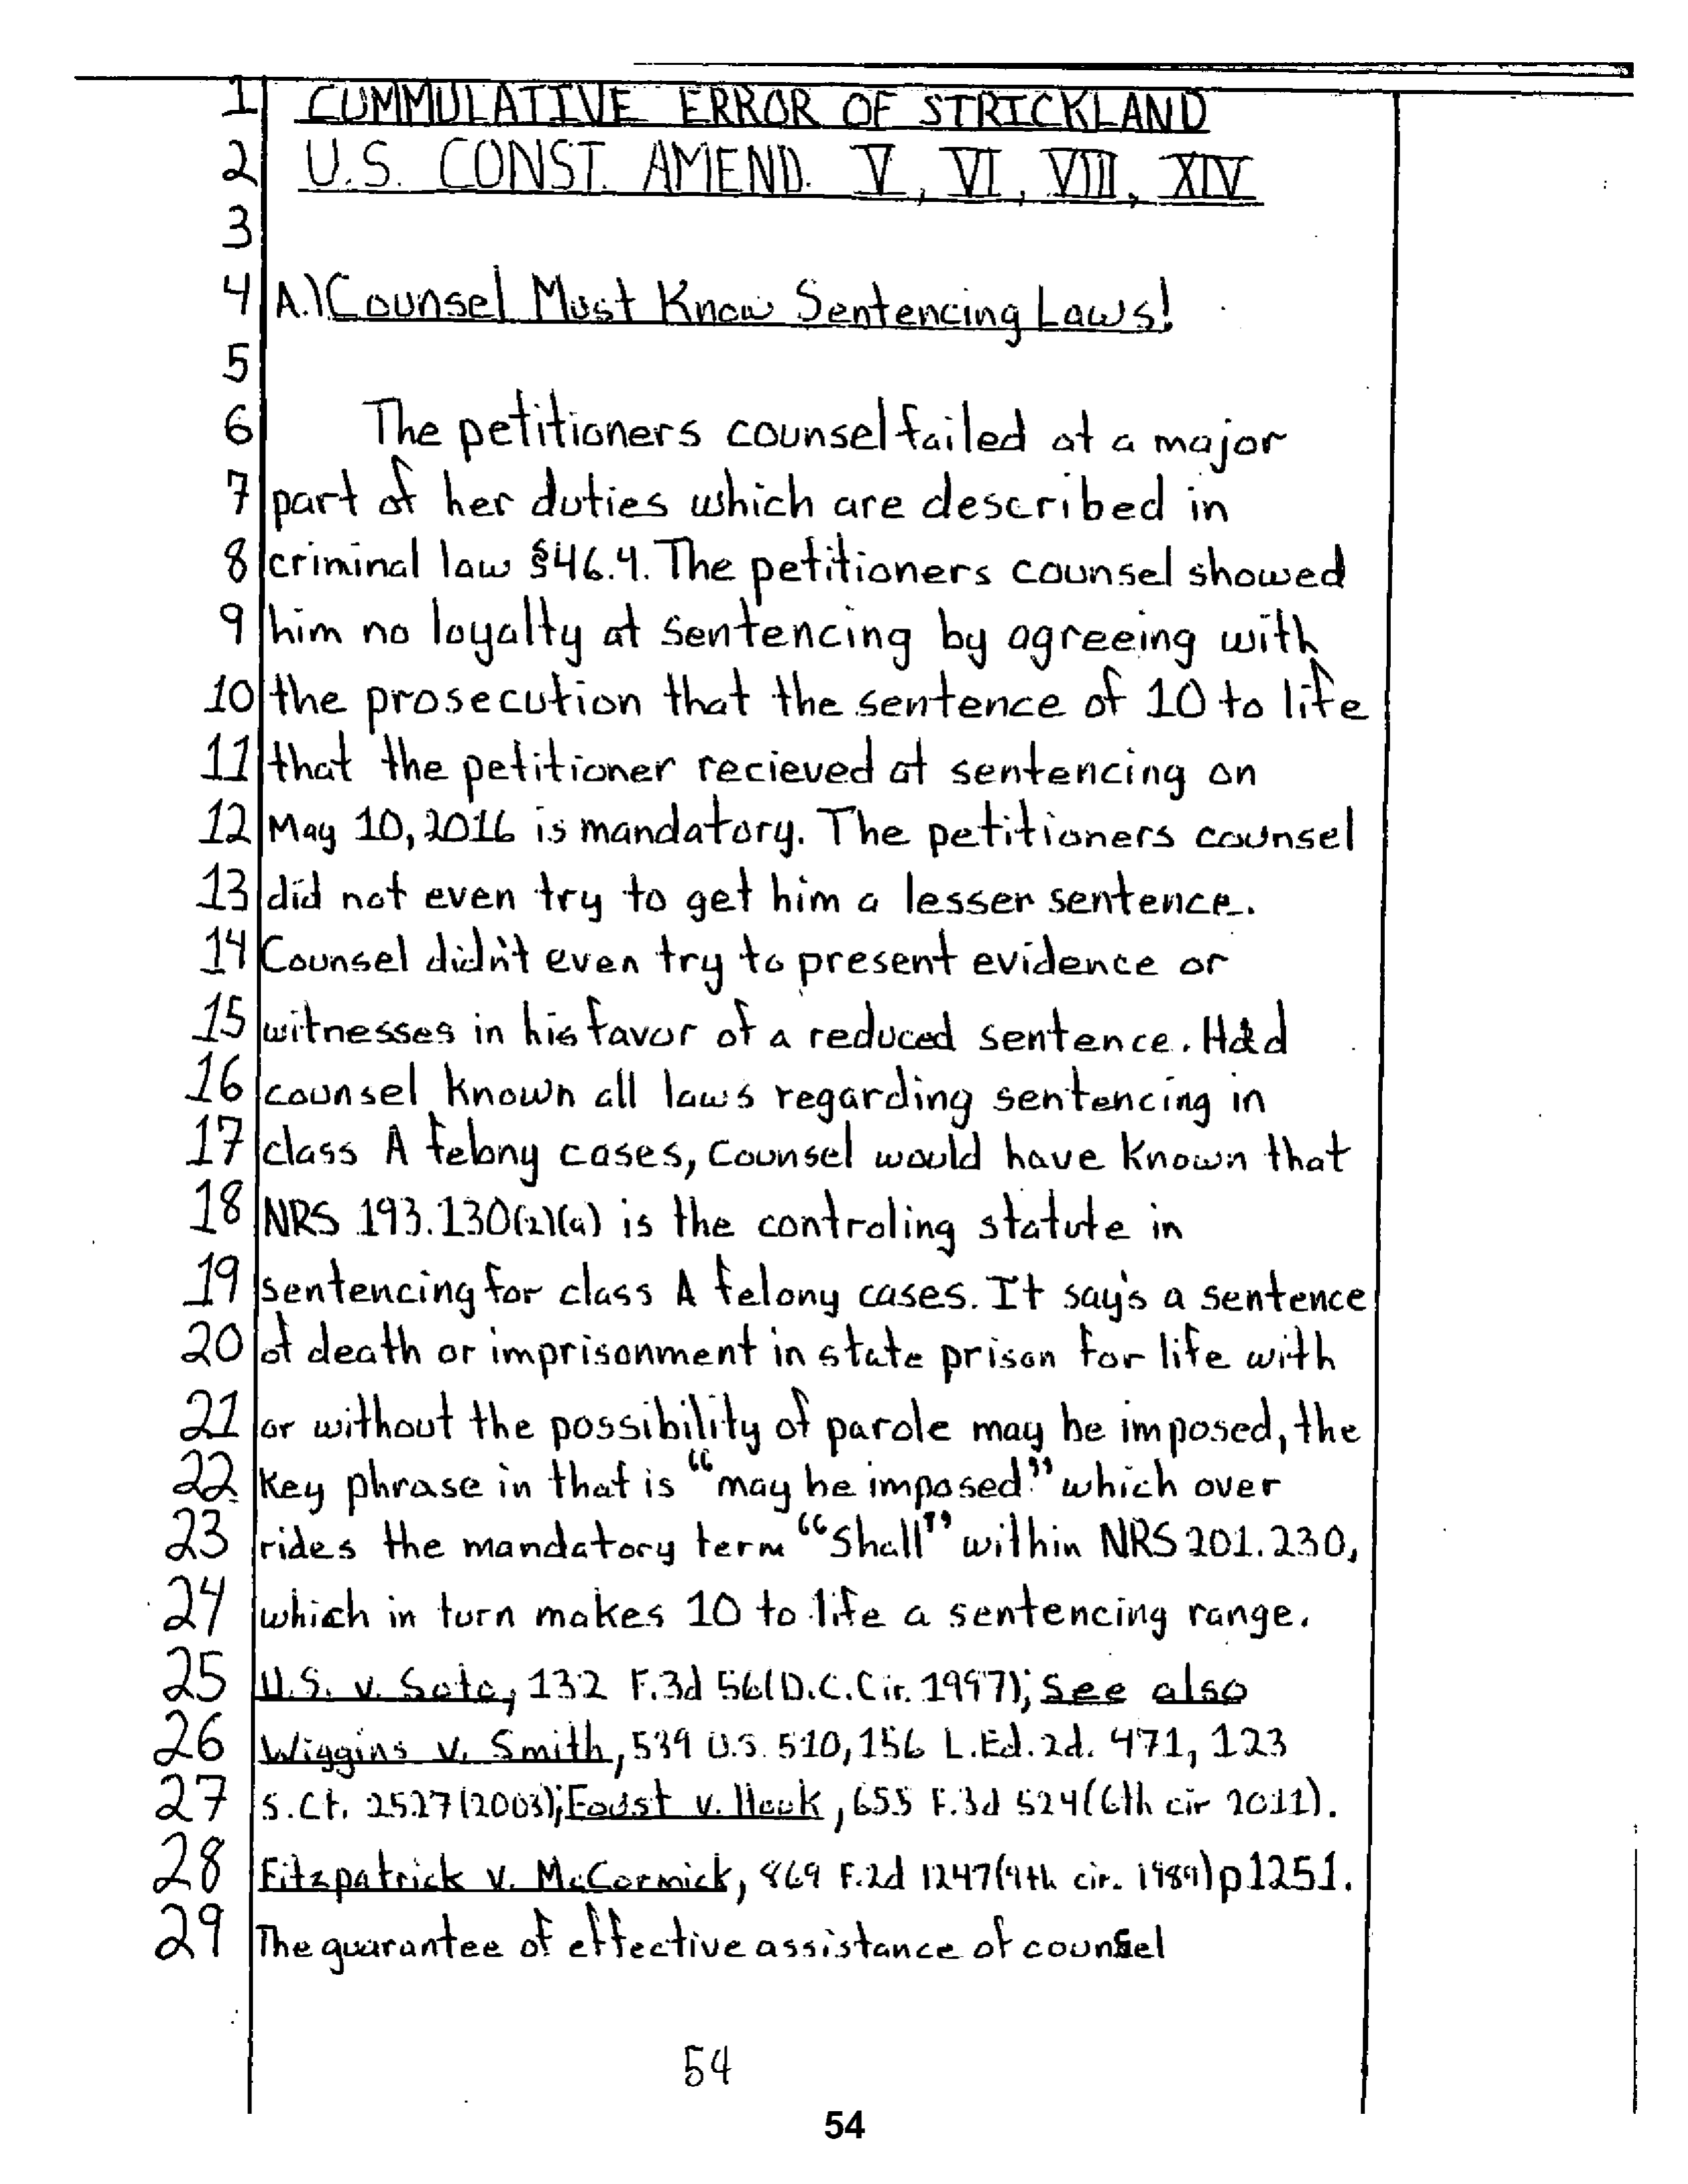 1 CUMMULATIVE ERROR OF STRICKLAND
2 U.S. CONST. AMEND. V, VI, VIII, XIV
3
4 A.) Counsel Must Know Sentencing Laws!
5
6 The petitioners counsel failed at a major
7 part of her duties which are described in
8 criminal law §46.4. The petitioners counsel showed
9 him no loyalty at sentencing by agreeing with
10 the prosecution that the sentence of 10 to life
11 that the petitioner recieved at sentencing on
12 May 10, 2016 is mandatory. The petitioners counsel
13 did not even try to get him a lesser sentence.
14 Counsel didn't even try to present evidence or
15 witnesses in his favor of a reduced sentence. Had
16 counsel known all laws regarding sentencing in
17 class A felony cases, Counsel would have known that
18 NRS 193.130(2)(a) is the controling statute in
19 sentencing for class A felony cases. It say's a sentence
20 of death or imprisonment in state prison for life with
21 or without the possibility of parole may be imposed, the
22 key phrase in that is "may be imposed." which over
23 rides the mandatory term "Shall" within NRS 201.230,
24 which in turn makes 10 to life a sentencing range.
25 U.S. v. Soto, 132 F.3d 56(D.C.Cir. 1997); See also
26 Wiggins v. Smith, 539 U.S. 510, 156 L.Ed.2d. 471, 123
27 S.Ct. 2527(2003); Foust v. Houk, 655 F.3d 524(6th cir 2011).
28 Fitzpatrick v. McCormick, 869 F.2d 1247(9th cir. 1989) p1251.
29 The guarantee of effective assistance of counsel
54
54